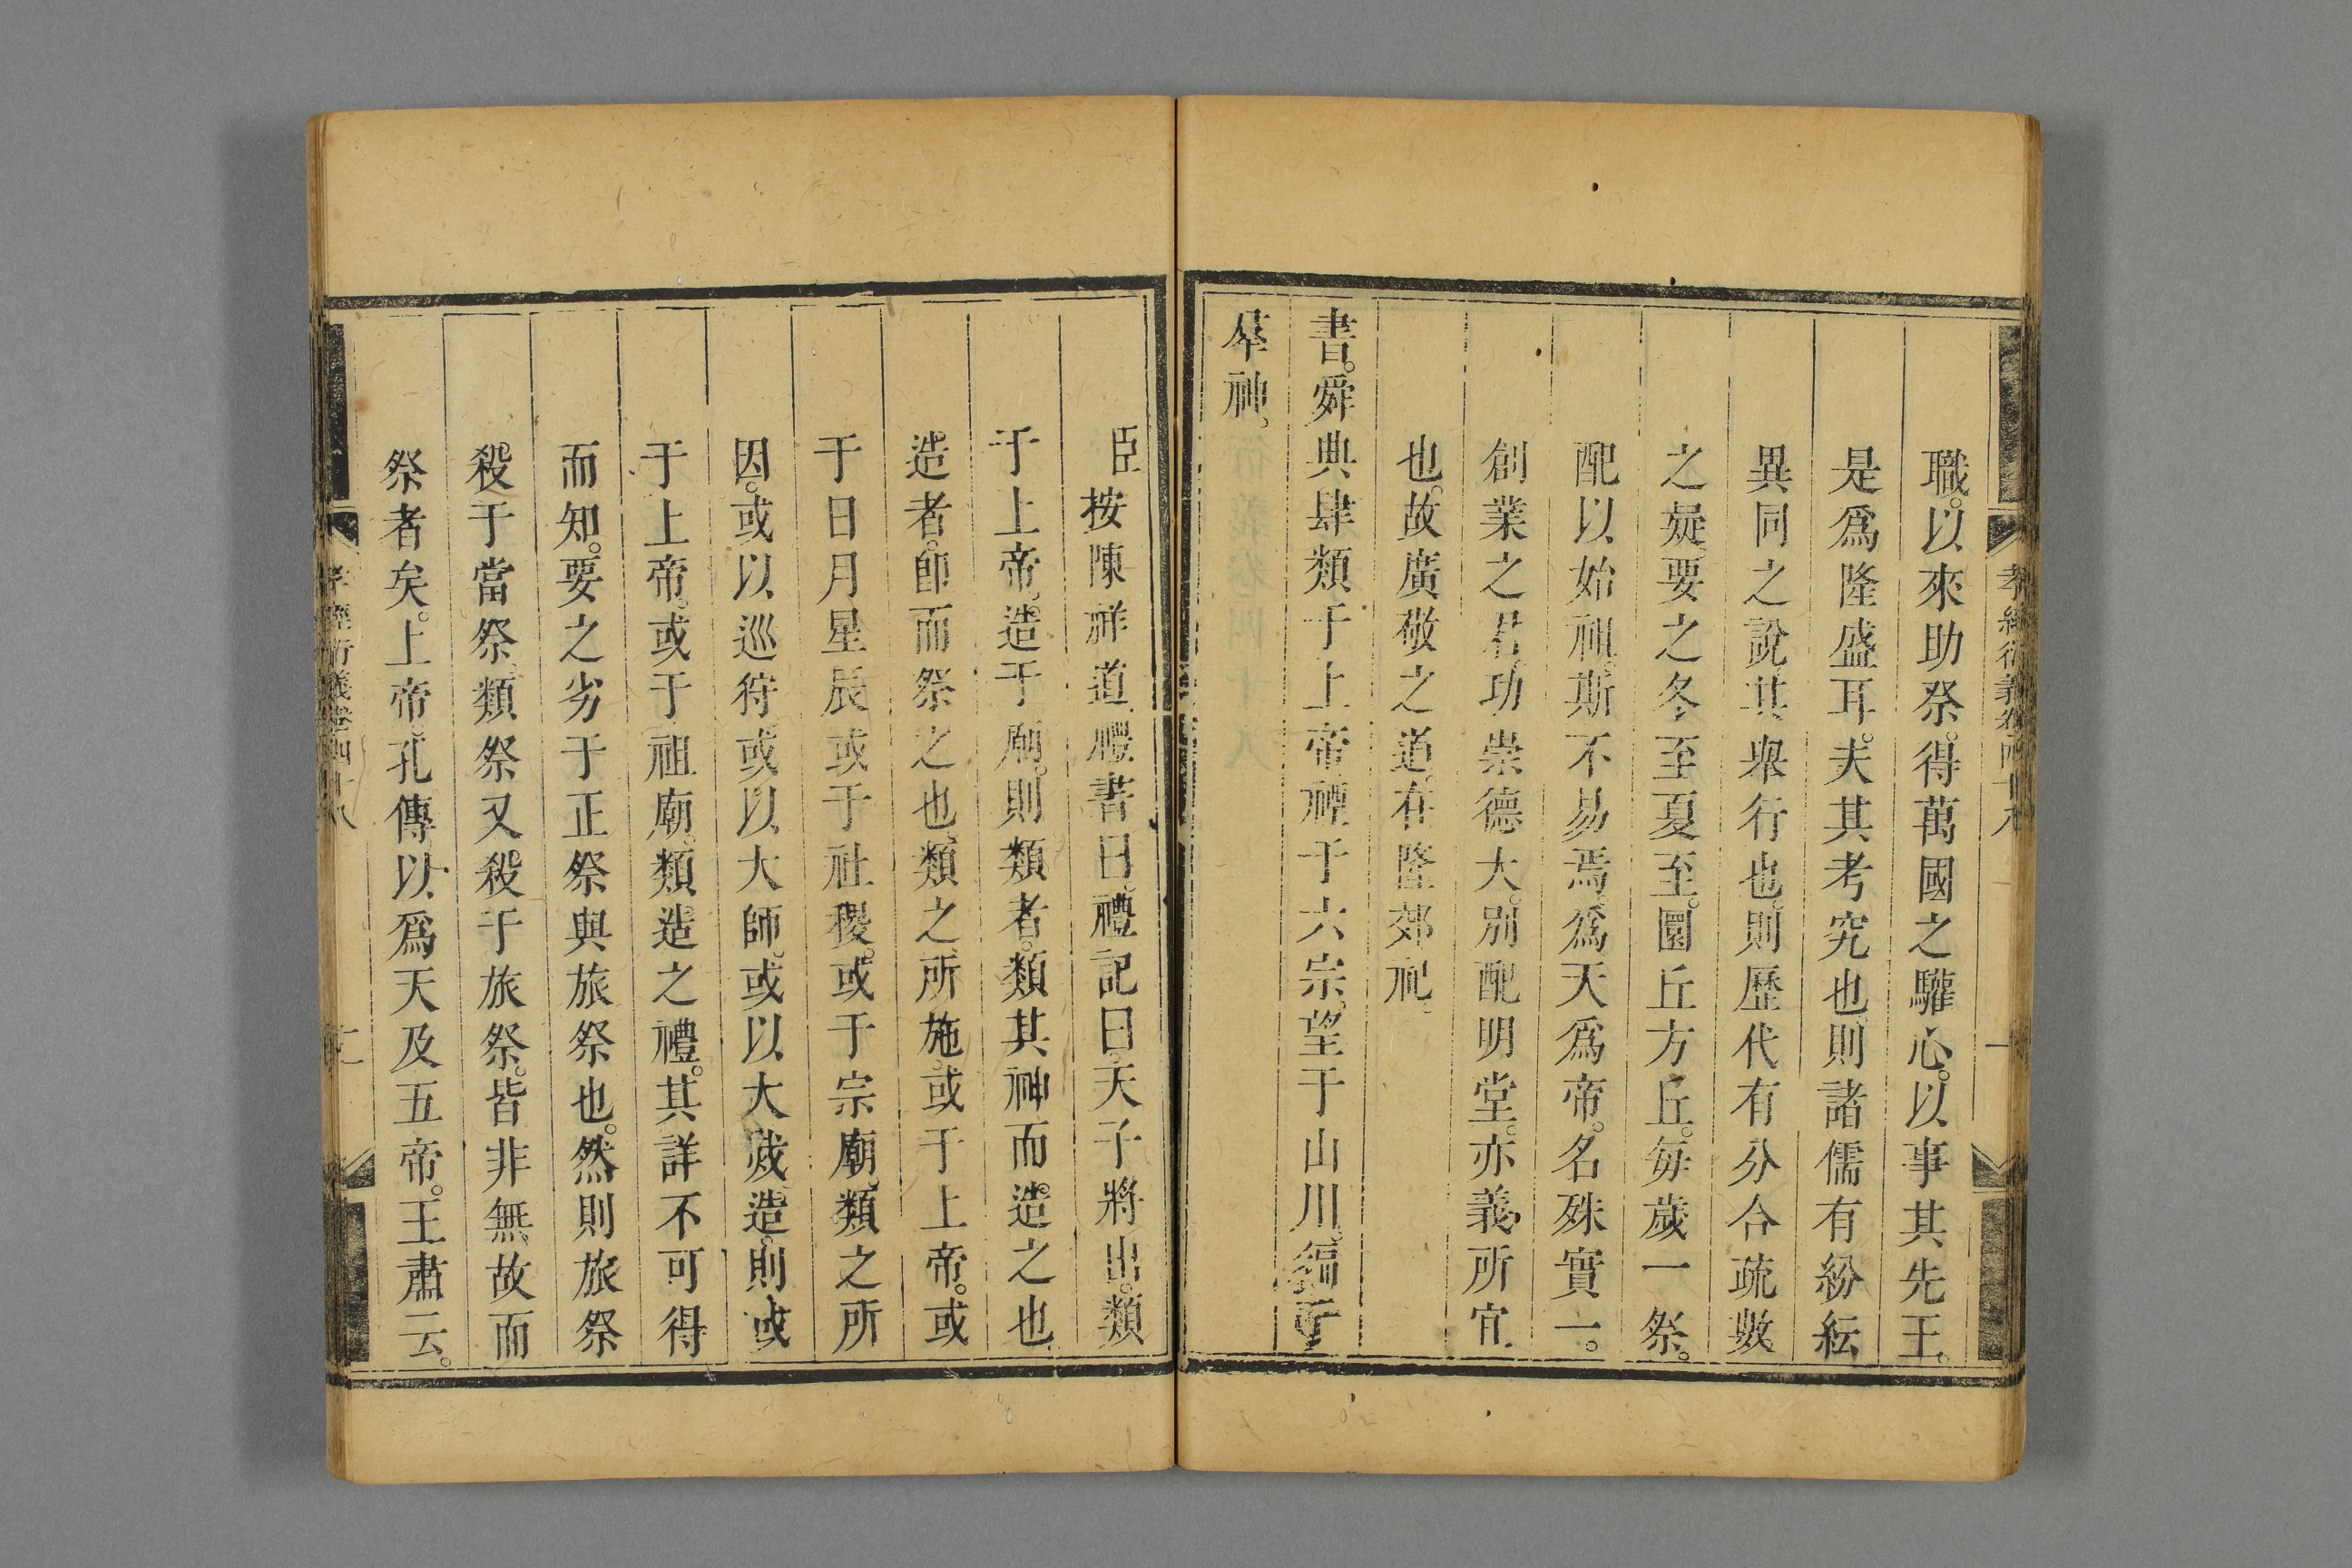 職。以來助祭。得萬國之驩心。以事其先王。
是爲隆盛耳。夫其考究也。則諸儒有紛紜
異同之說。其舉行也。則歷代有分合疏數
之疑。要之冬至夏至。圜丘方丘。每歲一祭。
配以始祖。斯不易焉。爲天爲帝。名殊實一。
創業之君。功崇德大。別配明堂。亦義所宜
也。故廣敬之道。在隆郊祀。
書。舜典肆類于上帝。禋于六宗。望于山川。徧于
羣神。
臣按陳祥道禮書曰。禮記曰。天子將出。類
于上帝。造于廟。則類者。類其神而造之也。
造者。卽而祭之也。類之所施。或于上帝。或
于日月星辰。或于社稷。或于宗廟。類之所
因。或以巡狩。或以大師。或以大烖。造。則或
于上帝。或于祖廟。類造之禮。其詳不可得
而知。要之劣于正祭與旅祭也。然則旅祭
殺于當祭。類祭又殺于旅祭。皆非無故而
祭者矣。上帝。孔傳以爲天及五帝。王肅云。
孝經衍義卷四十八